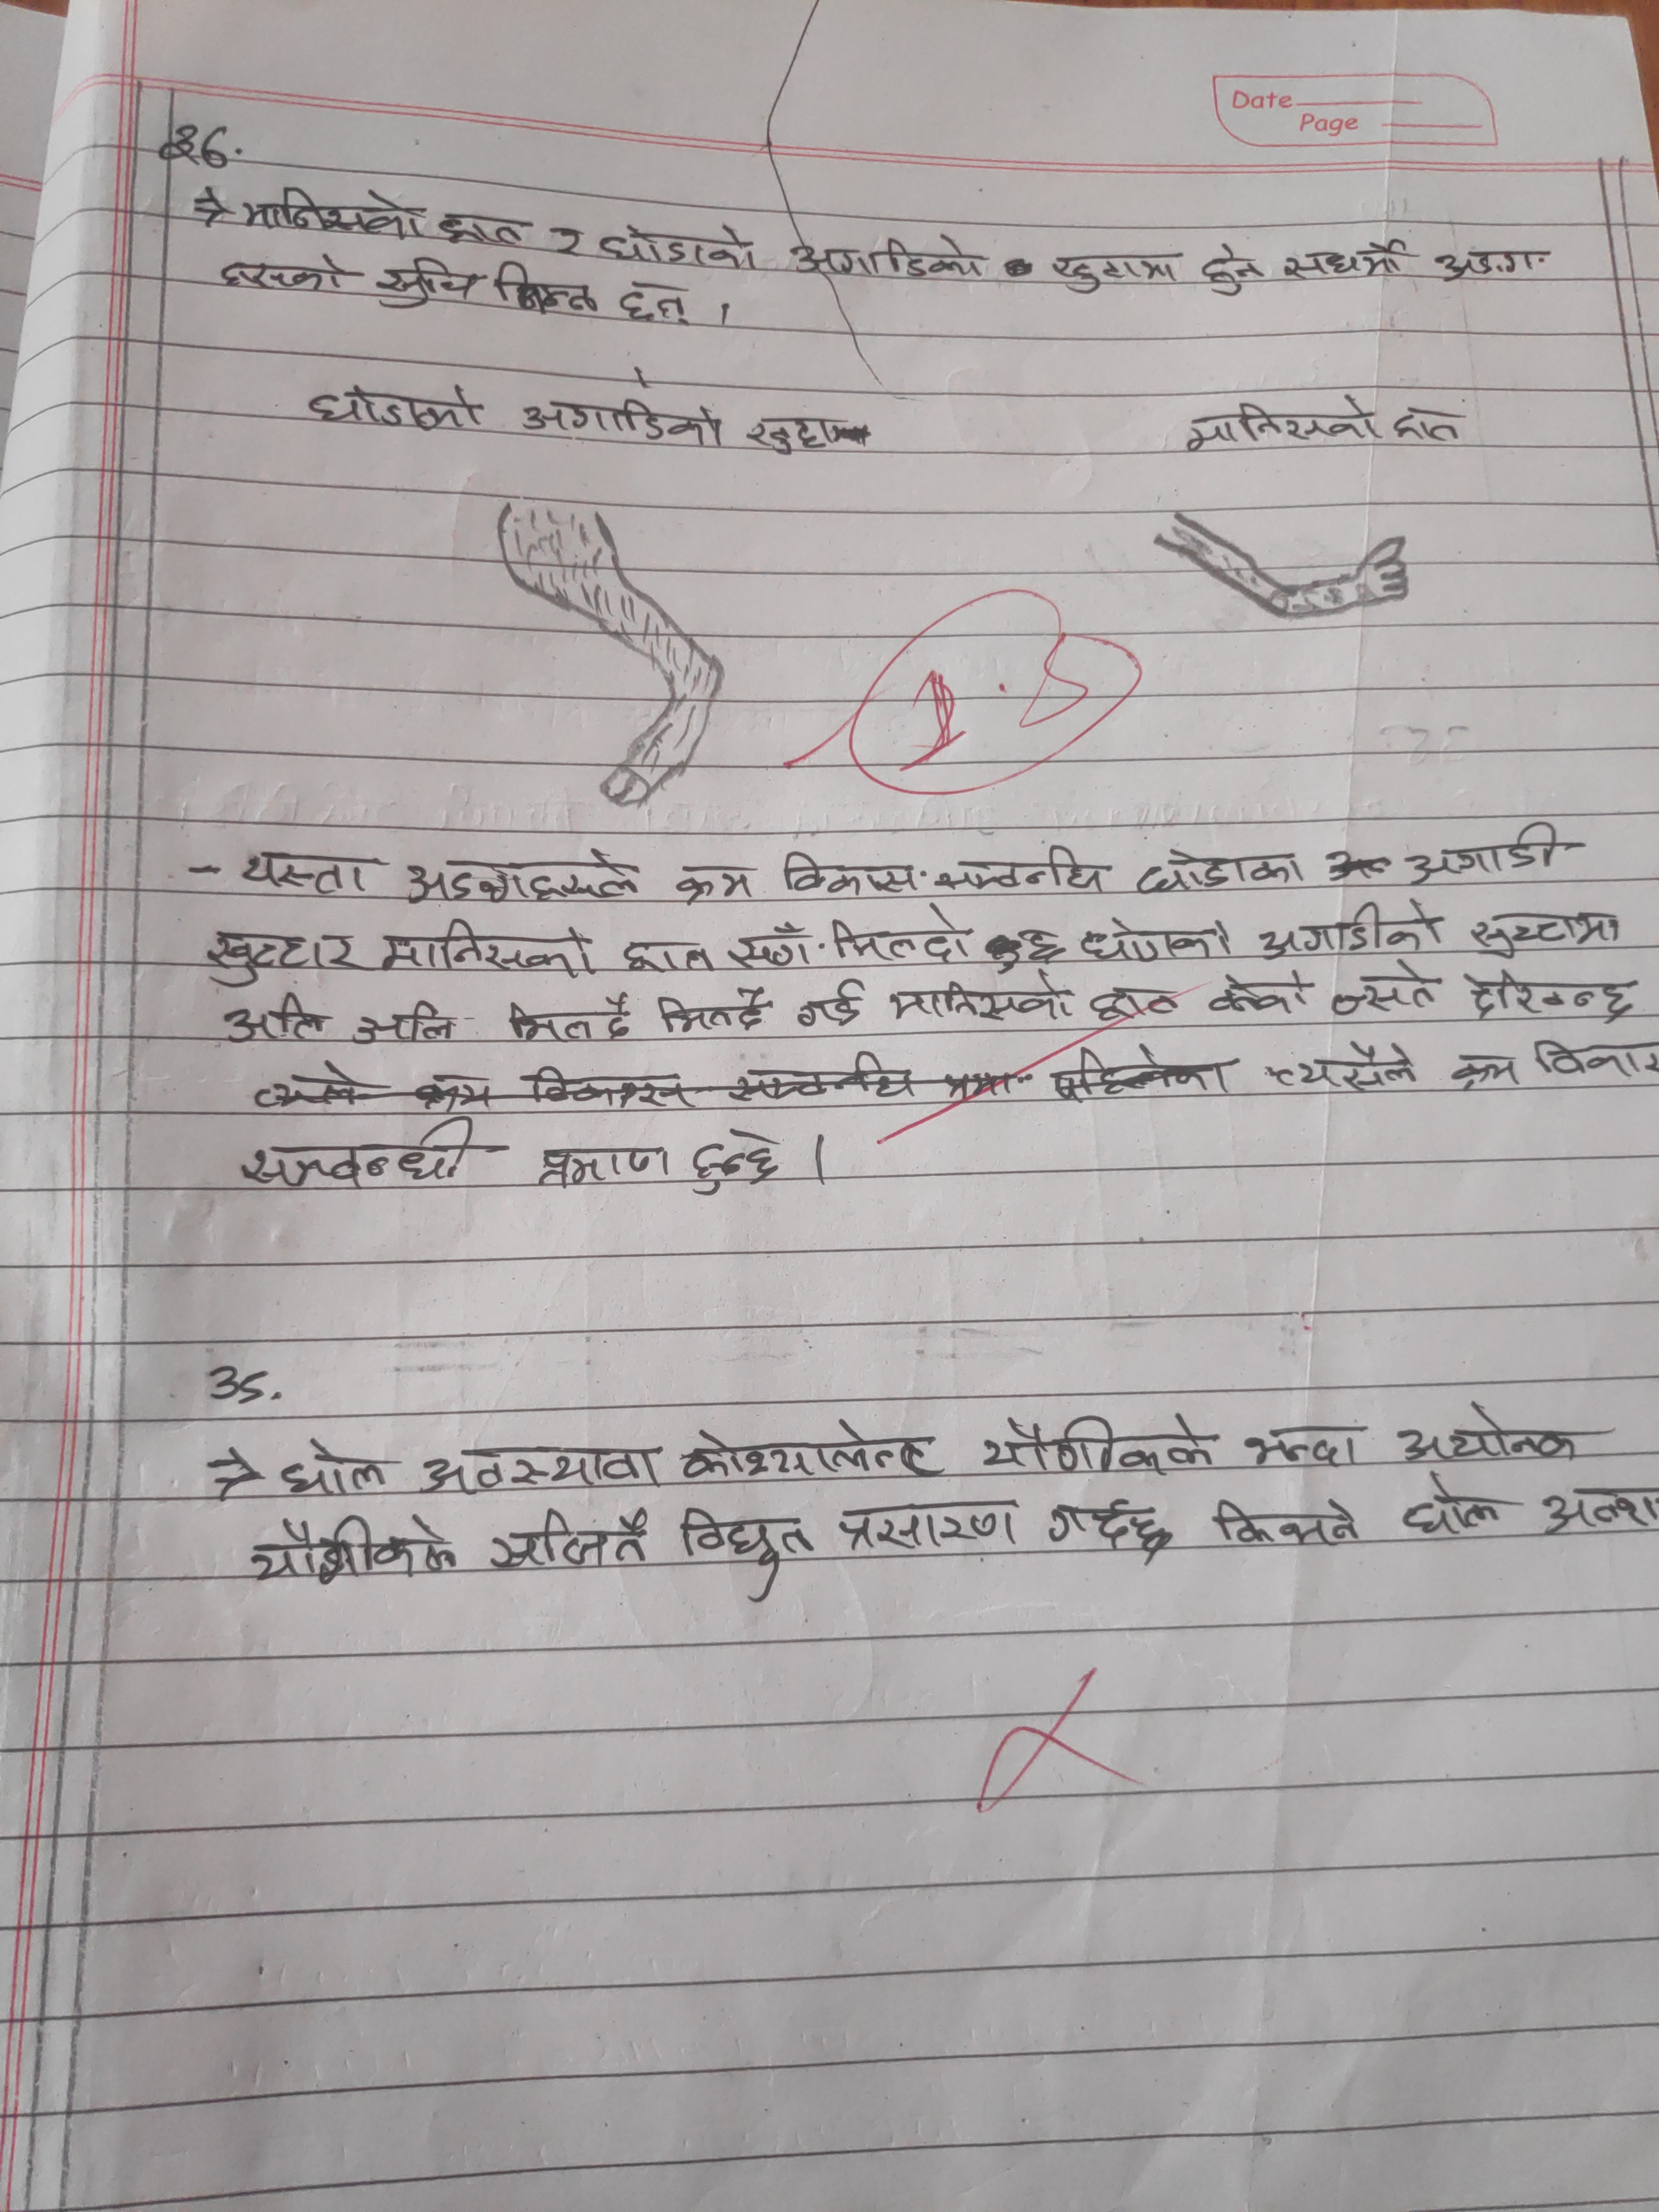 Date
Page
36.
→ मानिसको हात र घोडाको अगाडिको खुटामा हुने सधर्मी अङ.ग.
हरुको सुचि निम्न छन् ।
घोडाको अगाडिको खुट्टा
मानिसको हात
1.5
- यस्ता अङ्गहरुले क्रम विकास सम्वन्धि घोडाका अगाडी
खुट्टार मानिसको हात सगँ मिल्दो छ घोडाको अगाडीको खुट्टामा
अलि अलि मिल्दै मिल्दै गई मानिसको हात बनेको जस्तै देखिन्छ
त्यसैले क्रम विकास
सम्वन्धी प्रमाण हुन्छे ।
35.
→ घोल अवस्थावा कोभ्यालेन्ट यौगीकले भन्दा अयोनिक
यौगीकले सजितै विधुत प्रसारण गर्दछ किनभने घोल